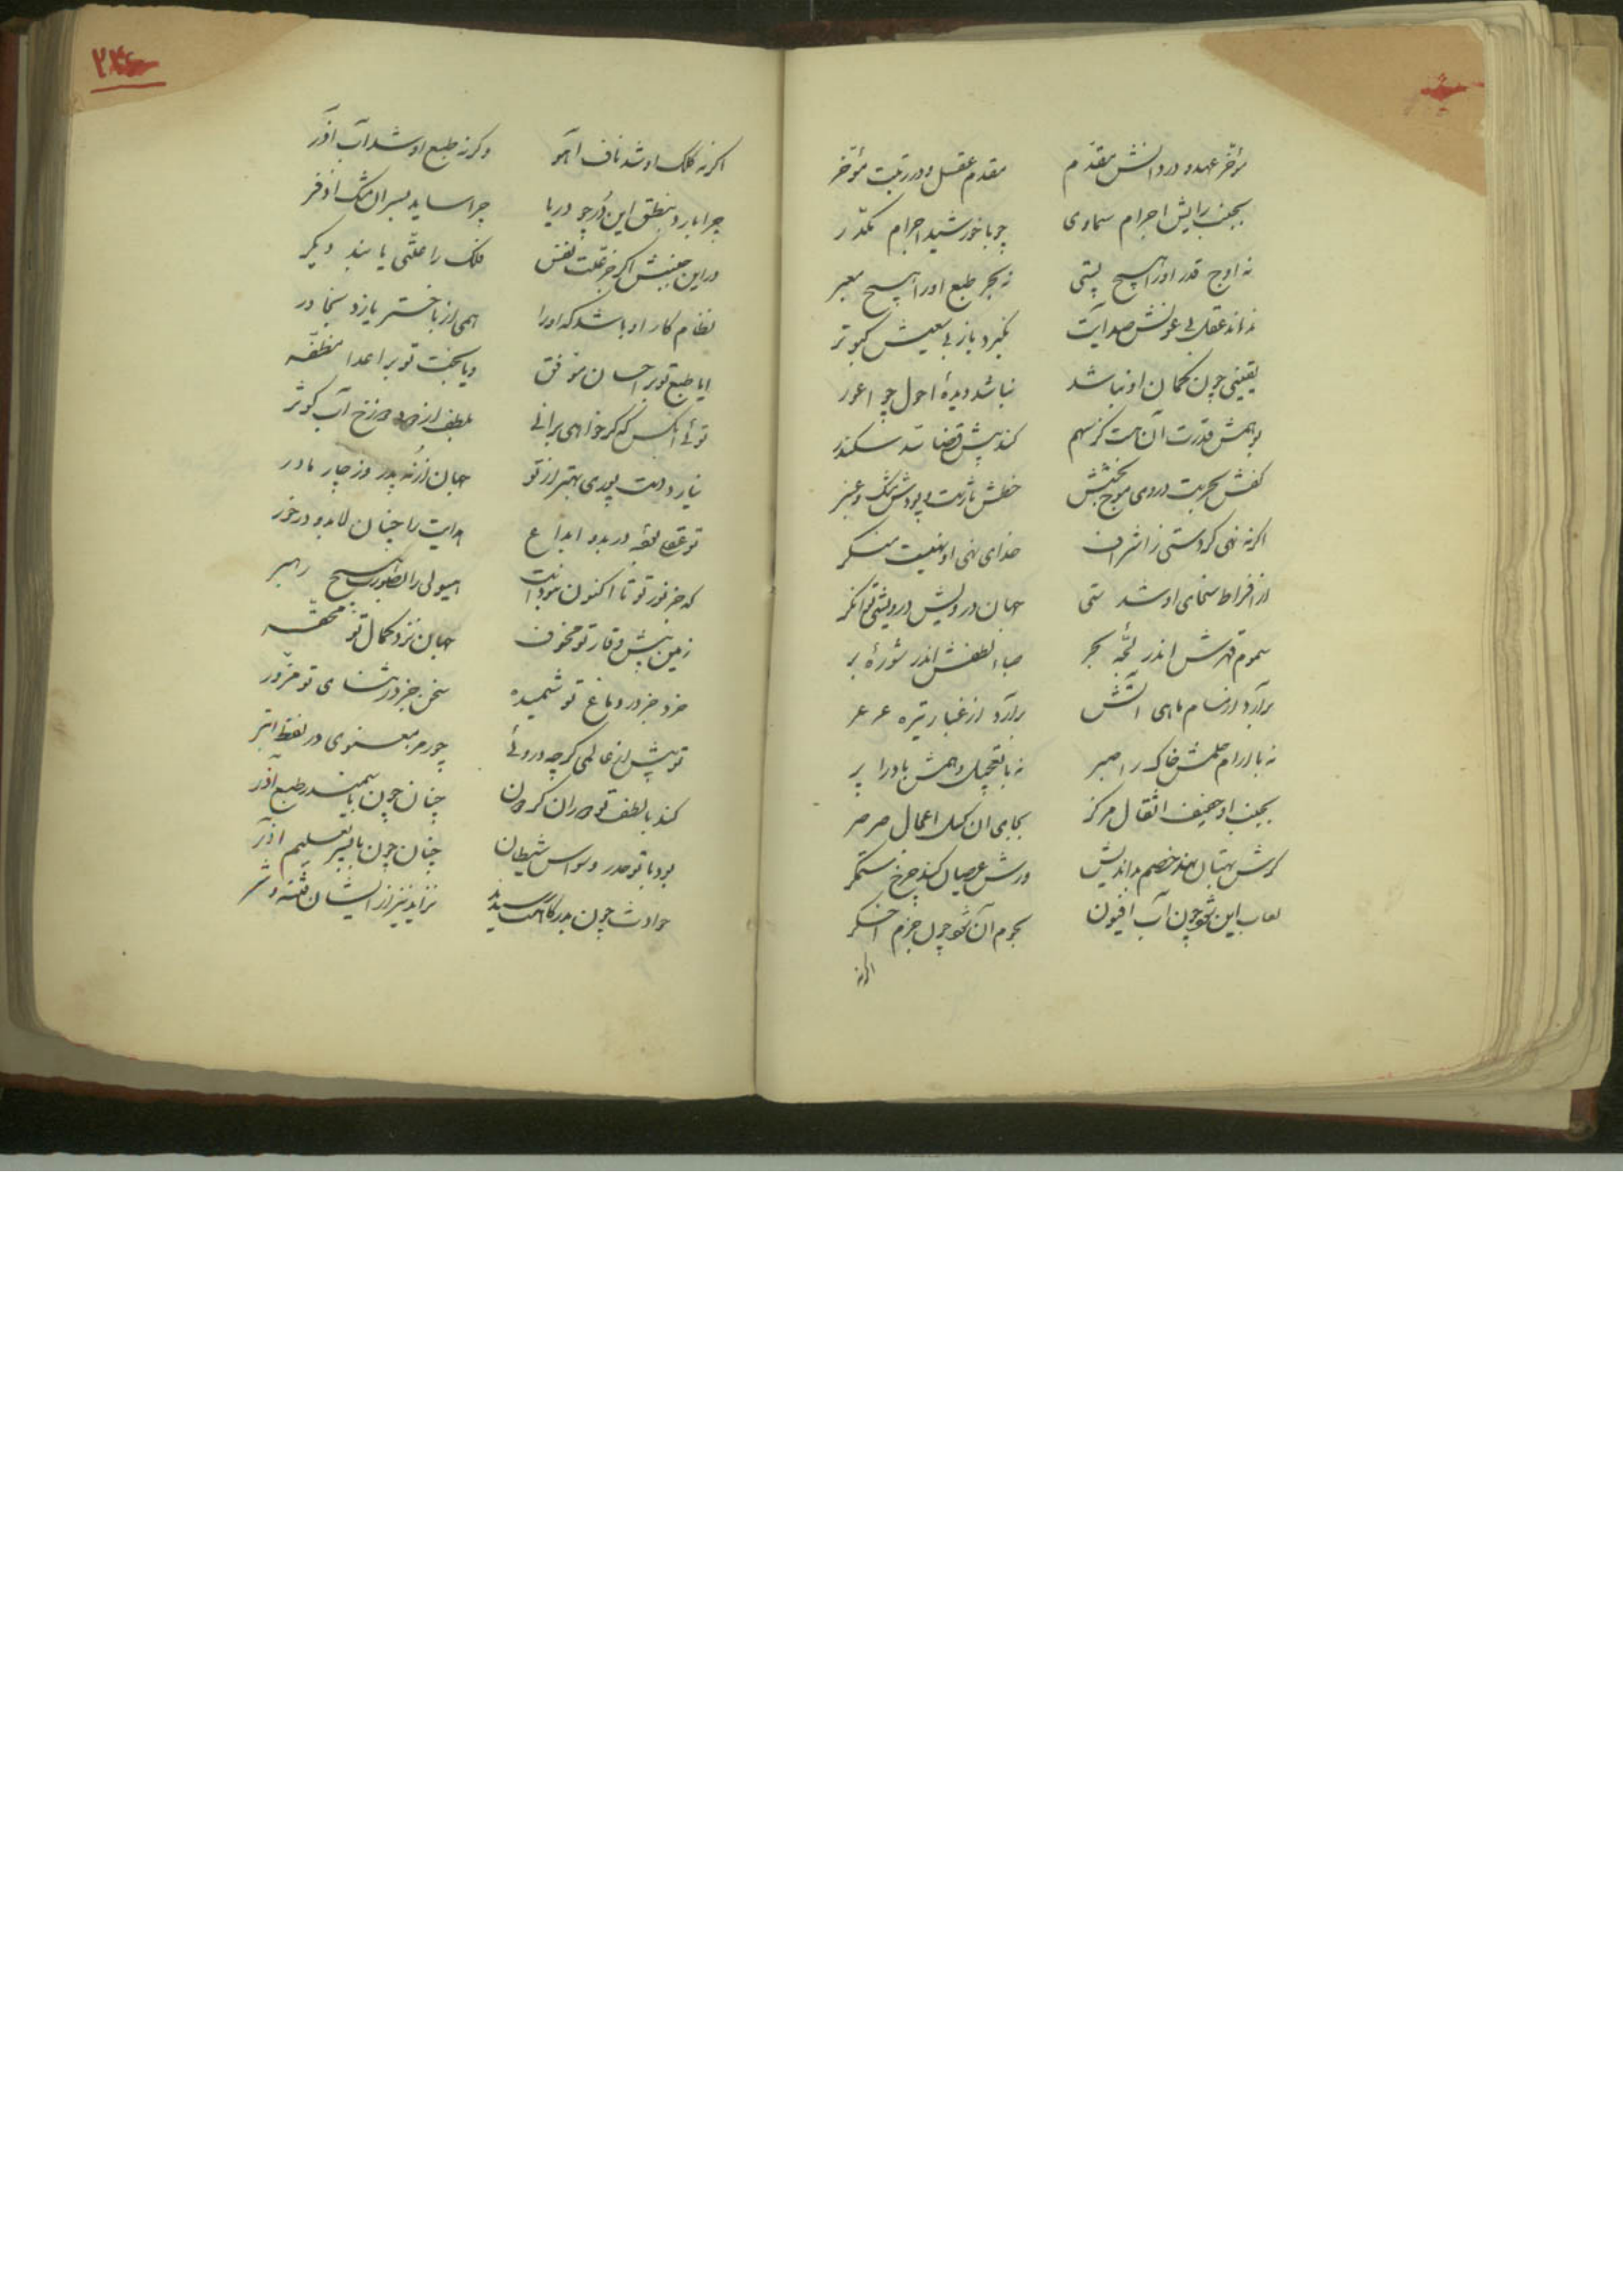 مؤخر عهد و در دانش مقدم    مقدم عقل و در رتبت مؤخر
بجنب رایش اجرام سماوی    چو با خورشید اجرام مکدر
نه اوج قدر او را هیچ پستی    نه بحر طبع او را هیچ معبر
نداند عقل بی عونش هدایت    نگیرد باز بی سعیش کبوتر
یقینی چون کمان او نباشد    نباشد دیدهٔ احول چو اعور
بوهمش قدرت آن هست کز سهم    کند پیش قضا سد سکندر
کفش بحریست در وی موج بخشش    خطش تاریست بی پودش مشک و عنبر
اگر نه نهی کردستی ز اشراف    خدای نهی او نعیست منکر
از افراط سخای او شدستی    جهان درویش درویشی توانگر
سموم قهرش اندر لجهٔ بحر    صبا لطفش اندر شورهٔ بر
برآرد از مسام ماهی آتش    برآرد از غبار تیره عرعر
نه با آرام حلمش خاک را صبر    نه با تعجیل وهمش باد را پر
بجنب او خفیف اثقال مرکز    بجای آن کسل اعمال صرصر
گرش بهتان نهد خصم بداندیش    ورش عصیان کند چرخ ستمگر
لعاب این شود چون آب افیون    نجوم آن شود چون جزم اخگر
اگر نه
۲۴
اگر نه کلک او شد ناف آهو    وگرنه طبع او شد آب آذر
چرا بارد بنطق این در چو دریا    چرا ساید بسر آن مشک اذفر
در این جنبش اگر جز علت نفس    فلک را علتی یابند دیگر
نظام کار او باشد که او را    همی از باختر یازد بخاور
ایا طبع تو بر احسان موفق    ویا بخت تو بر اعدا مظفر
توئی آنکس که گر خواهی برآنی    بلطف از دود دوزخ آب کوثر
نیاردست پوری بهتر از تو    جهان از نه پدر وز چار مادر
تو عقل بوده‌ای در بدو ابداع    هدایت را چنان لابد و درخور
که جز نور تو تا اکنون نبودست    هیولی را بصورت هیچ رهبر
زمین پیش وقار تو مخفف    جهان نزد کمال تو محقر
خرد جز در دماغ تو شمیده    سخن جز در ثنای تو مزور
تو پیش از عالمی گرچه دروئی    چو رمز معنوی در لفظ ابتر
کند با لطف تو دوران گردون    چنان چون با سمندر طبع آذر
بود با تو حدر وسواس شیطان    چنان چون با پیر تعلیم آذر
حوادث چون بدرگاهت رسیدند    نزاید نیز از ایشان فتنه و شر